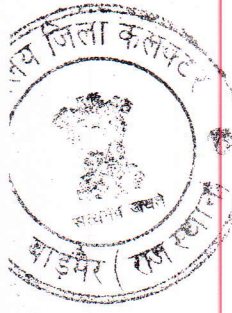 जिला कलक्टर
सत्यमेव जयते
बाड़मेर ( राजस्थान